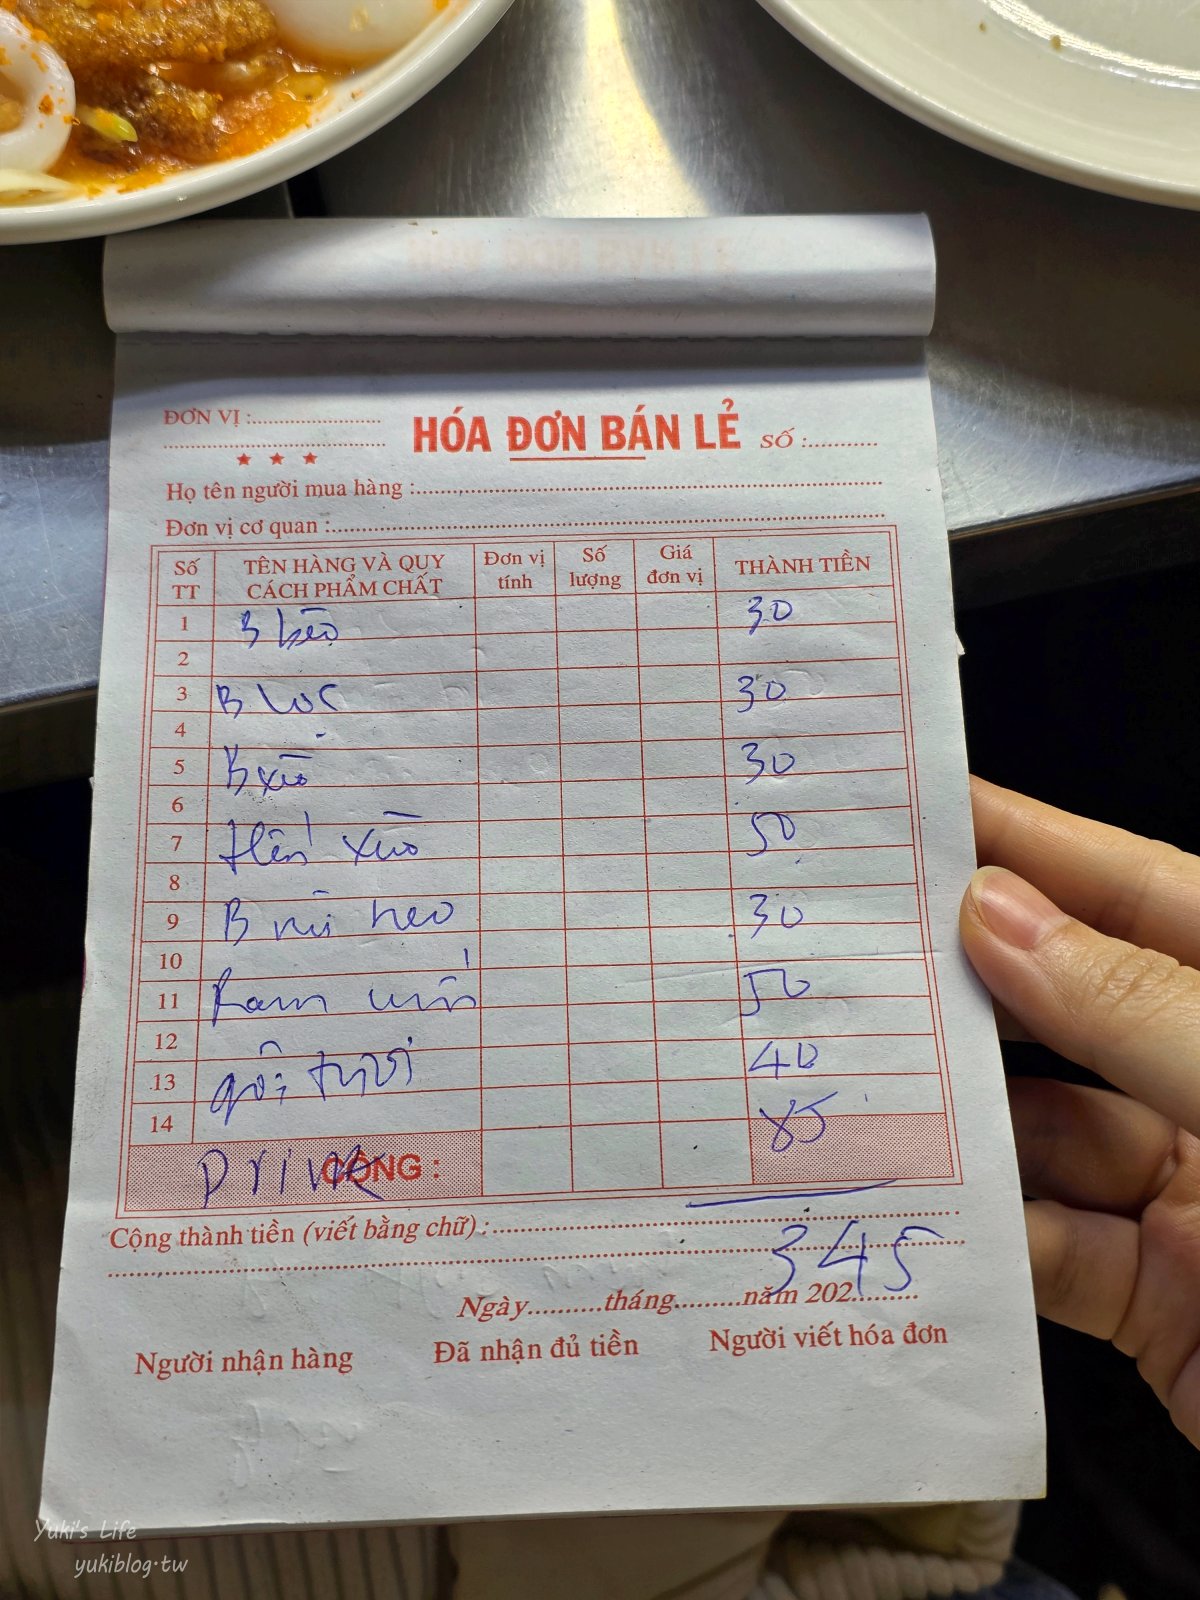 ĐƠN VỊ :
HÓA ĐƠN BÁN LẺ
SỐ :
★ ★ ★
Họ tên người mua hàng :
Đơn vị cơ quan :
Số TT
TÊN HÀNG VÀ QUY CÁCH PHẨM CHẤT
Đơn vị tính
Số lượng
Giá đơn vị
THÀNH TIỀN
1 B bèo 30
2
3 B lọc 30
4
5 B xèo 30
6
7 Hến xào 50
8
9 B heo 30
10
11 Ram 50
12
13 gỏi 40
14 85
Drink
CỘNG :
Cộng thành tiền (viết bằng chữ) :
345
Ngày..........tháng.........năm 202.........
Người nhận hàng
Đã nhận đủ tiền
Người viết hóa đơn
Yuki's Life
yukiblog.tw